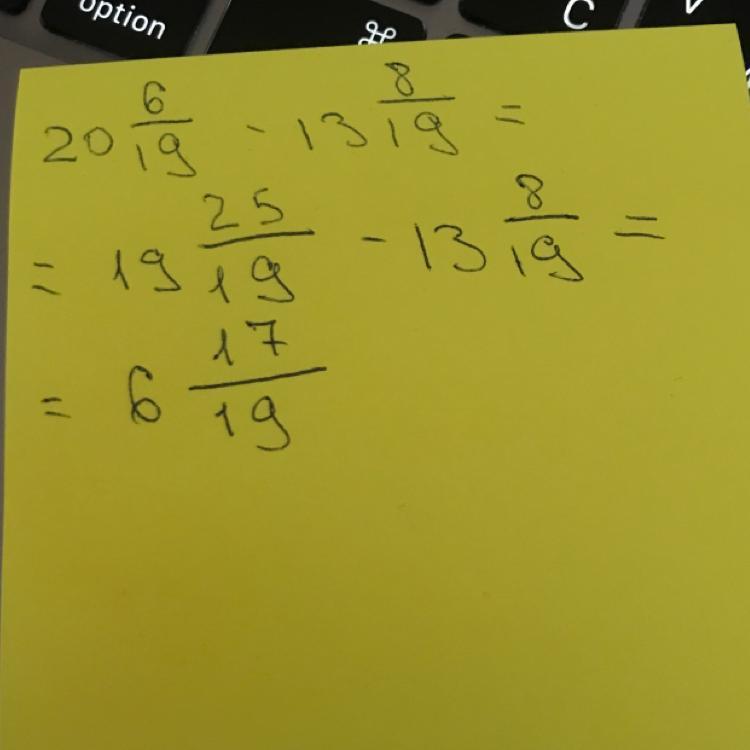 option ⌘ C V
20 6/19 - 13 8/19 =
= 19 25/19 - 13 8/19 =
= 6 17/19